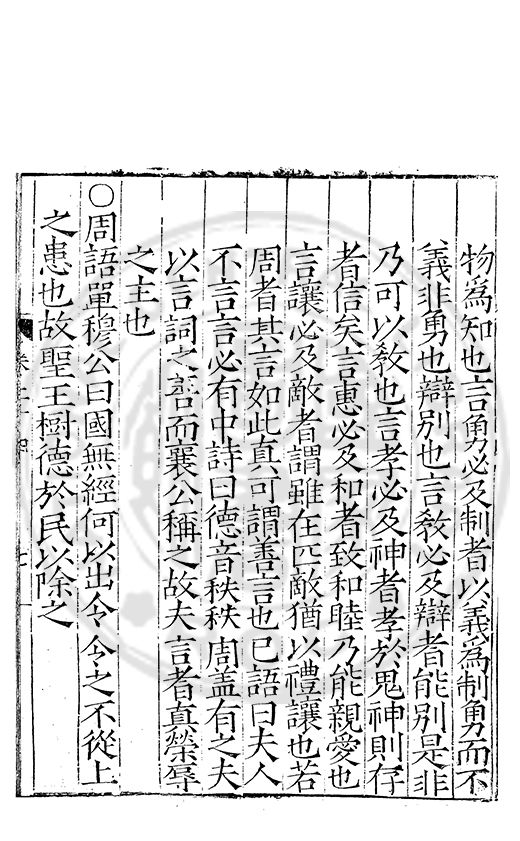 物為知也言勇必及制者以義為制勇而不
義非勇也辯別也言教必及辯者能別是非
乃可以教也言孝必及神者孝於鬼神則存
者信矣言惠必及和者致和睦乃能親愛也
言讓必及敵者謂雖在匹敵猶以禮讓也若
周者其言如此真可謂善言也已語曰夫人
不言言必有中詩曰德音秩秩周盖有之夫
以言詞之善而襄公稱之故夫言者真榮辱
之主也
○周語單穆公曰國無經何以出令令之不從上
之患也故聖王樹德於民以除之